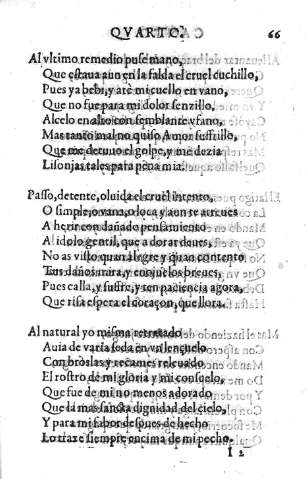 QVARTO. 66
Al vltimo remedio puse mano,
Que estaua aun en la falda el cruel cuchillo,
Pues ya bebi, y atè mi cuello en vano,
Que no fue para mi dolor senzillo,
Alcelo en alto con semblante vfano,
Mas tanto mal no quiso Amor sufrillo,
Que me detuuo el golpe, y me dezia
Lisonjas tales para pena mia.
Passo, detente, oluida el cruel intento,
O simple, o vana, o loca y aun te atreues
A herir con dañado pensamiento
Al idolo gentil, que adorar deues,
No as visto quan alegre y quan contento
Tus daños mira, y consuelos breues,
Pues calla, y sufre, y ten paciencia agora,
Que risa espera el coraçon, que llora.
Al natural yo misma retratado
Auia de varia seda en vn lençuelo
Con broslas y recames releuado
El rostro de mi gloria y mi consuelo,
Que fue de mi no menos adorado
Que la mas sancta dignidad del cielo,
Y para mi fabor despues de hecho
Lo traxe siempre encima de mi pecho.
I 2